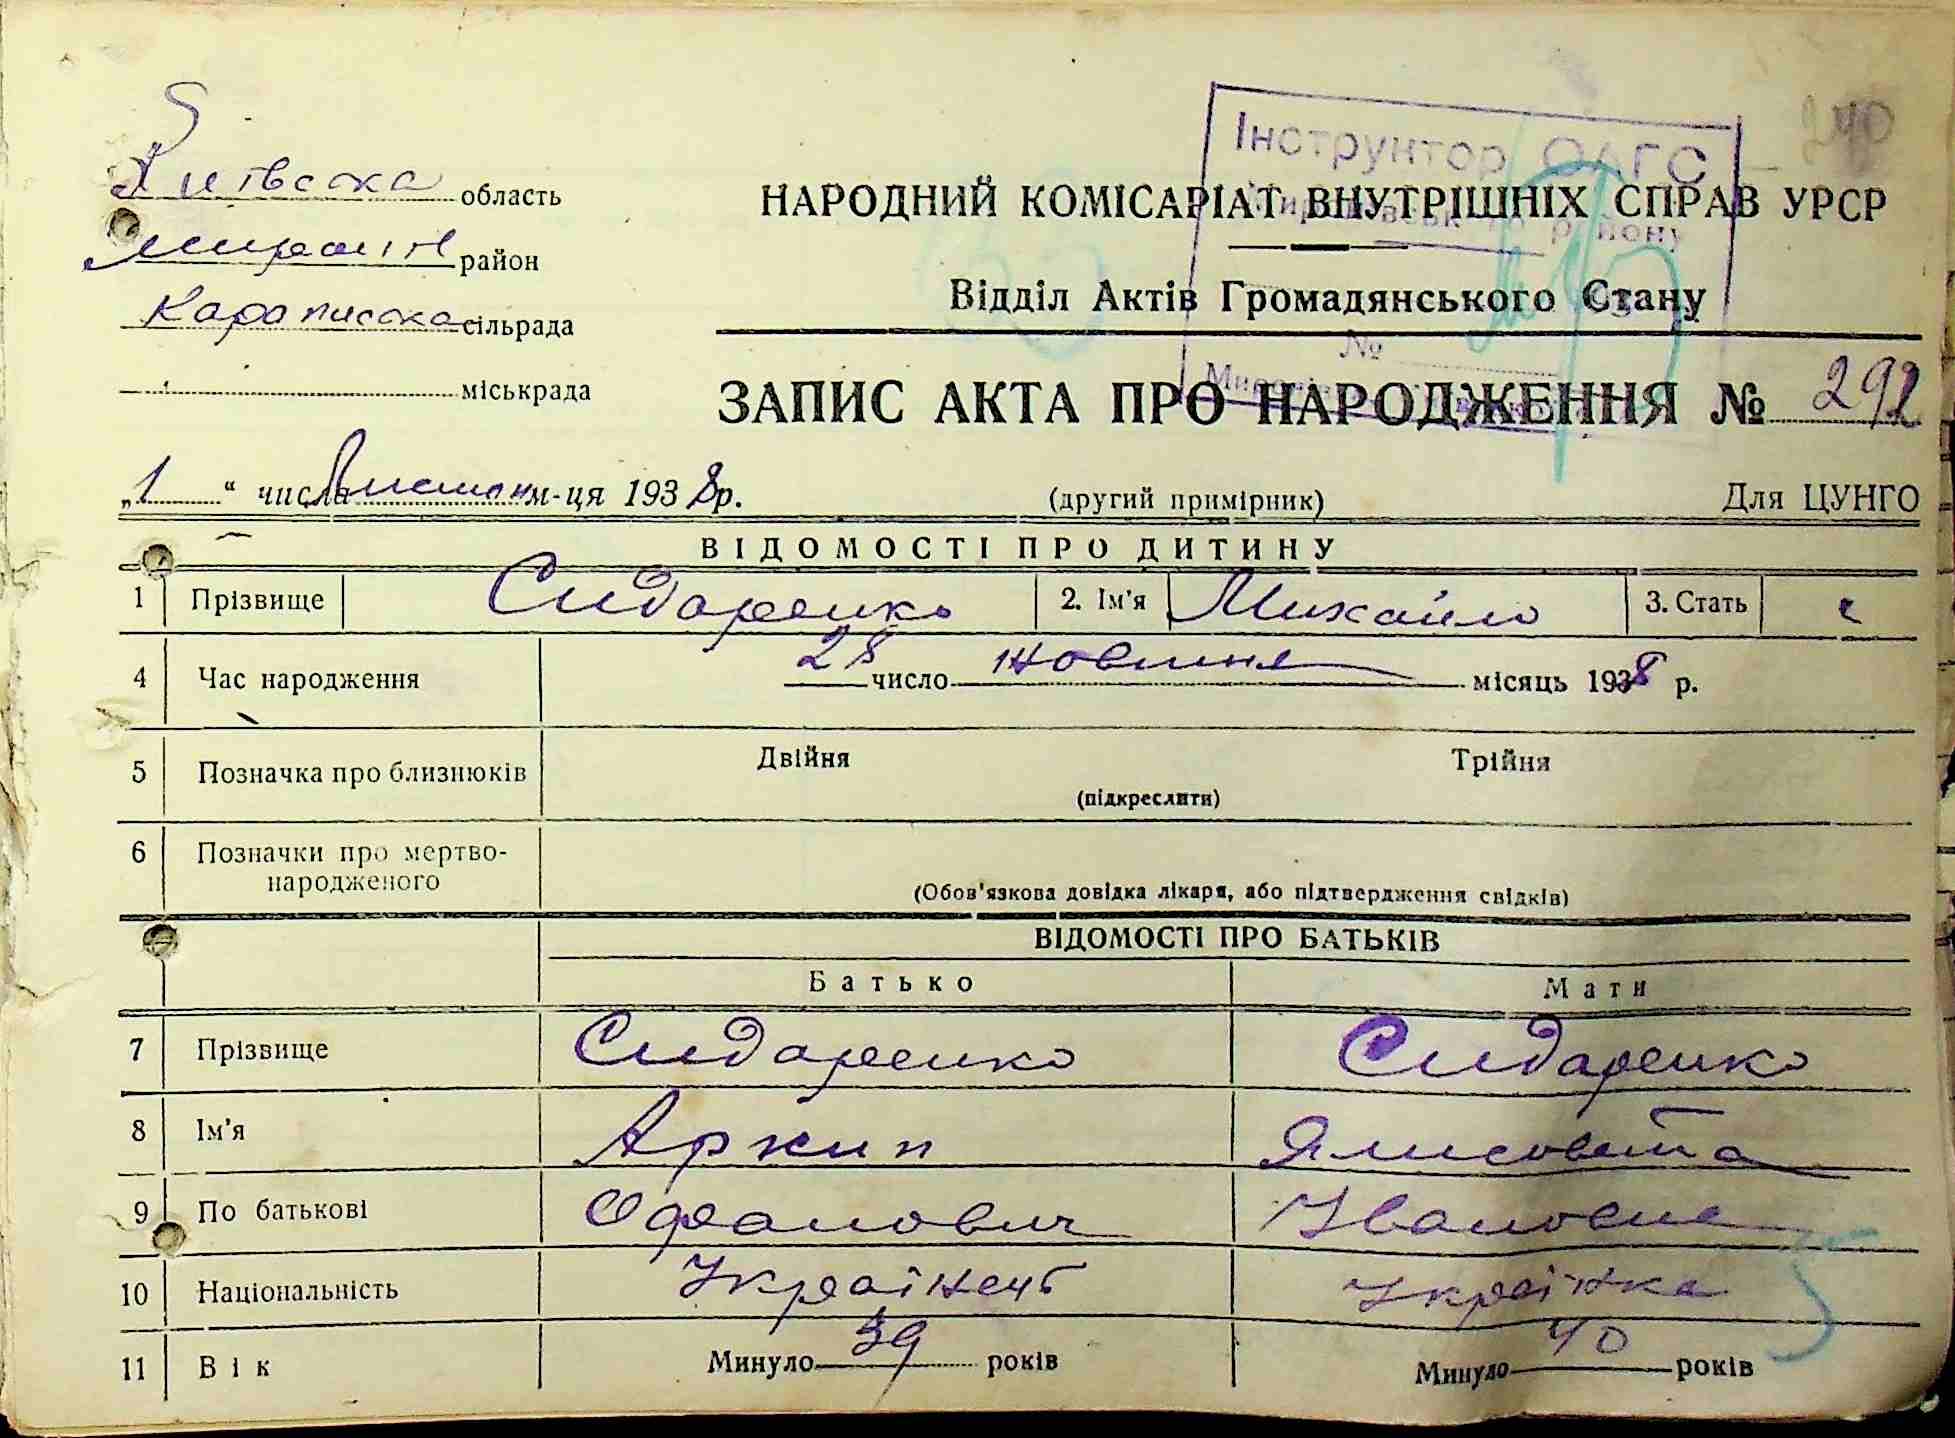 Київська область
Миронів район
Караписька сільрада
міськрада
Інструктор ОАГС
району
№
240
НАРОДНИЙ КОМІСАРІАТ ВНУТРІШНІХ СПРАВ УРСР
Відділ Актів Громадянського Стану
ЗАПИС АКТА ПРО НАРОДЖЕННЯ № 292
„1“ числа Листоп м-ця 1938р.
(другий примірник)
Для ЦУНГО
ВІДОМОСТІ ПРО ДИТИНУ
1 Прізвище Сидаренко 2. Ім'я Михайло 3. Стать ч
4 Час народження 28 число жовтня місяць 1938 р.
5 Позначка про близнюків Двійня Трійня
(підкреслити)
6 Позначки про мертво-
народженого
(Обов'язкова довідка лікаря, або підтвердження свідків)
ВІДОМОСТІ ПРО БАТЬКІВ
Батько Мати
7 Прізвище Сидаренко Сидаренко
8 Ім'я Архип Ялисовета
9 По батькові Офанович Ивановне
10 Національність Українець Українка
11 Вік Минуло 39 років Минуло 40 років